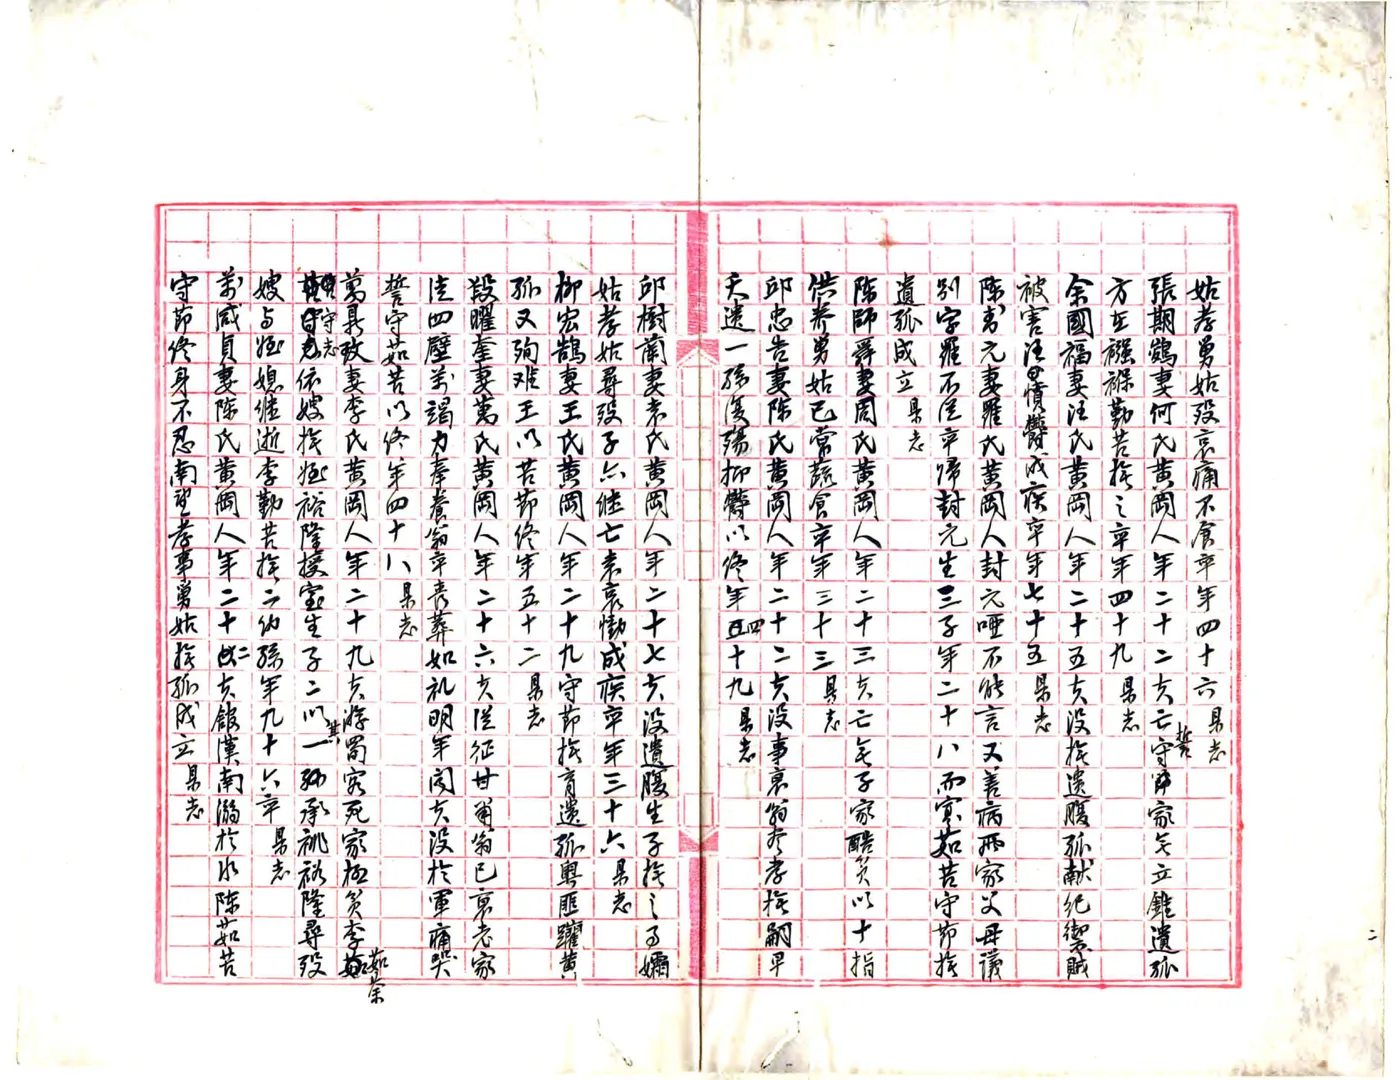 姑孝舅姑歿哀痛不食卒年四十六县志
張期鷁妻何氏黄岡人年二十二夫亡誓守家无立錐遺孤
方在襁褓勤苦撫之卒年四十九县志
余國福妻汪氏黄岡人年二十五夫没撫遺腹孤献纪禦賊
被害汪憤鬱成疾卒年七十五县志
陈元妻羅氏黄岡人封元啞不能言又善病两家父母議
别字羅不從卒歸封元生三子年二十八而寡茹苦守节撫
遺孤成立县志
陈師舜妻周氏黄岡人年二十三夫亡无子家酷贫以十指
供养舅姑已常蔬食卒年三十三县志
邱忠告妻陈氏黄岡人年二十二夫没事衰翁孝撫嗣早
夭遗一孫復殤抑鬱以终年四十九县志
邱樹蘭妻袁氏黄岡人年二十七夫没遺腹生子撫之事孀
姑孝姑尋殁子亦继亡袁哀慟成疾卒年三十六县志
柳宏鵠妻王氏黄岡人年二十九守节撫育遺孤粤匪躍黄
孤又殉难王以苦节终年五十二县志
段曜奎妻萬氏黄岡人年二十六夫從征甘肅翁已衰老家
徒四壁萬竭力奉養翁卒喪葬如礼明年闻夫没於軍痛哭
誓守茹苦以终年四十八县志
萬鼎玫妻李氏黄岡人年二十九夫游蜀客死家極贫李茹荼
守志依嫂撫姪裕隆授室生子二以其一孙承祧裕隆尋殁
嫂与姪媳继逝李勤苦撫二幼孫年九十六卒县志
萬咸貞妻陈氏黄岡人年二十二夫館漢南溺於水陈茹苦
守节终身不忍南望孝事舅姑撫孤成立县志
二